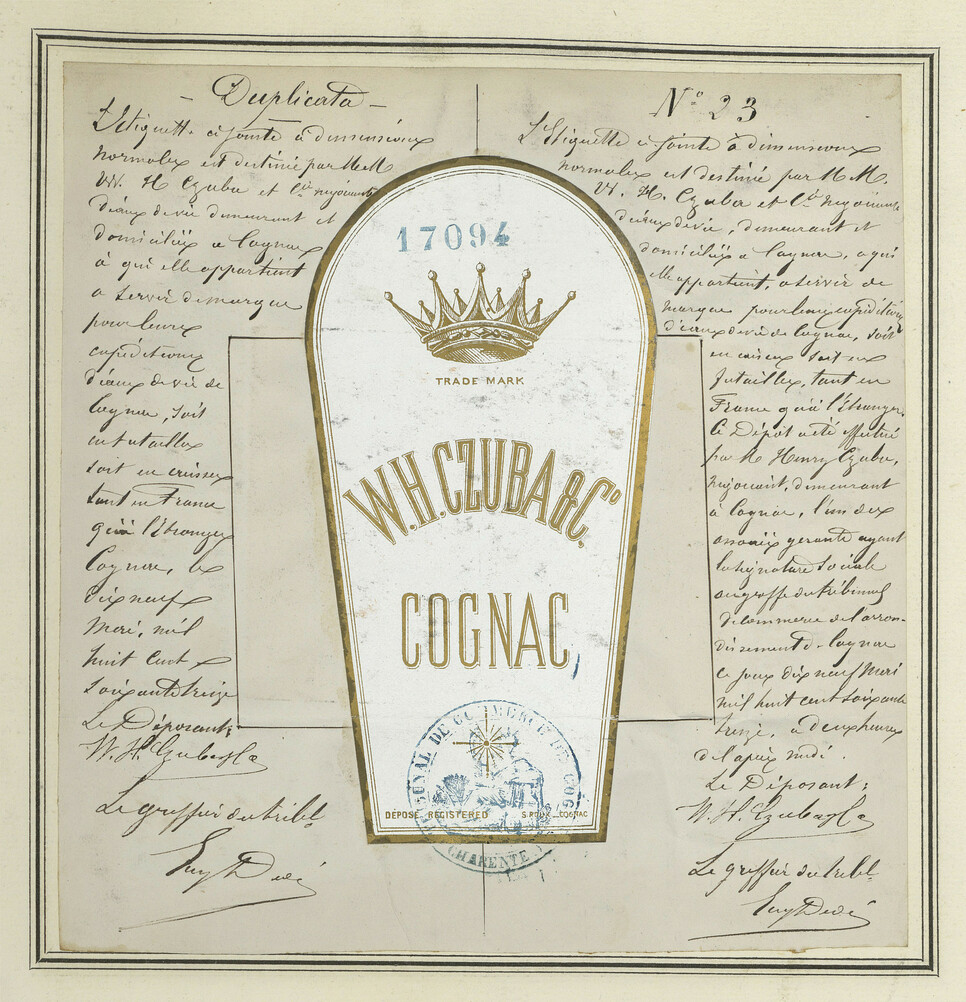 - Duplicata -
L'Etiquette ci jointe à dimensions
normales est destinée par M.M.
W. H. Czuba et Cie négociants
d'eaux de vie demeurant et
domiciliés a Cognac
à qui elle appartient
a servir de marque
pour leurs
expéditions
d'eaux de vie de
Cognac, soit
en futailles
soit en caisses
tant en France
qu'à l'étranger
Cognac, le
dix neuf
Mars, mil
huit cent
soixante treize
Le Déposant:
W. H. Czuba & Co
Le greffier du tribl
N° 23
L'Etiquette ci-jointe à dimensions
normales est destinée par M.M.
W. H. Czuba et Cie négociants
d'eaux de vie, demeurant et
domiciliés a Cognac, a qui
elle appartient, a servir de
marque pour leurs expéditions
d'eaux de vie de Cognac, soit
en caisses soit en
futailles, tant en
France qu'à l'étranger.
Ce Dépôt a été effectué
par M. Henry Czuba,
négociant, demeurant
à Cognac, l'un des
associés gerants ayant
la signature sociale
au greffe du tribunal
de commerce de l'arron-
dissement de Cognac
ce jour dix neuf Mars
mil huit cent soixante
treize, a deux heures
de l'après midi.
Le Déposant:
W. H. Czuba & Co
Le greffier du tribl
17094
TRADE MARK
W.H. CZUBA & Co.
COGNAC
TRIBUNAL DE COMMERCE DE COG
CHARENTE
DÉPOSÉ REGISTERED
COGNAC